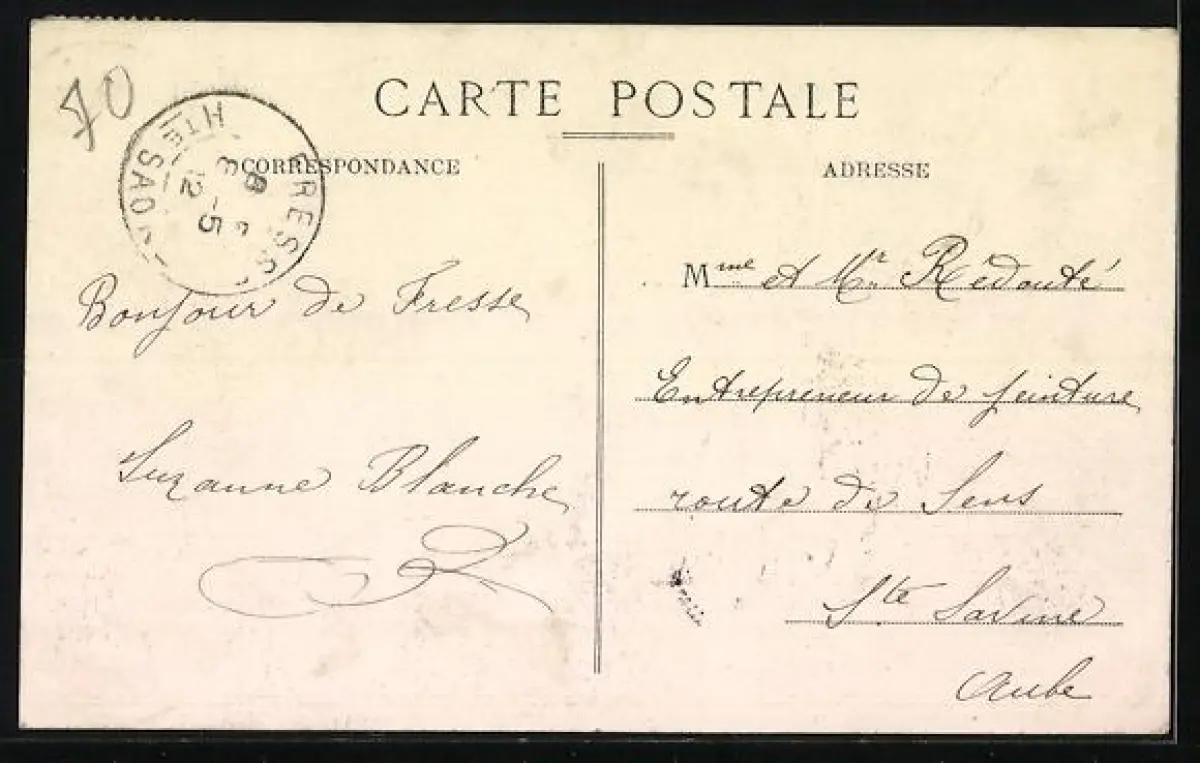 70
CARTE POSTALE
CORRESPONDANCE
ADRESSE
HTE SAÔN
Bonjour de Fresse
Suzanne Blanche
Mme et Mr Rédouté
Entrepreneur de peinture
route de Sens
Ste Savine
Aube